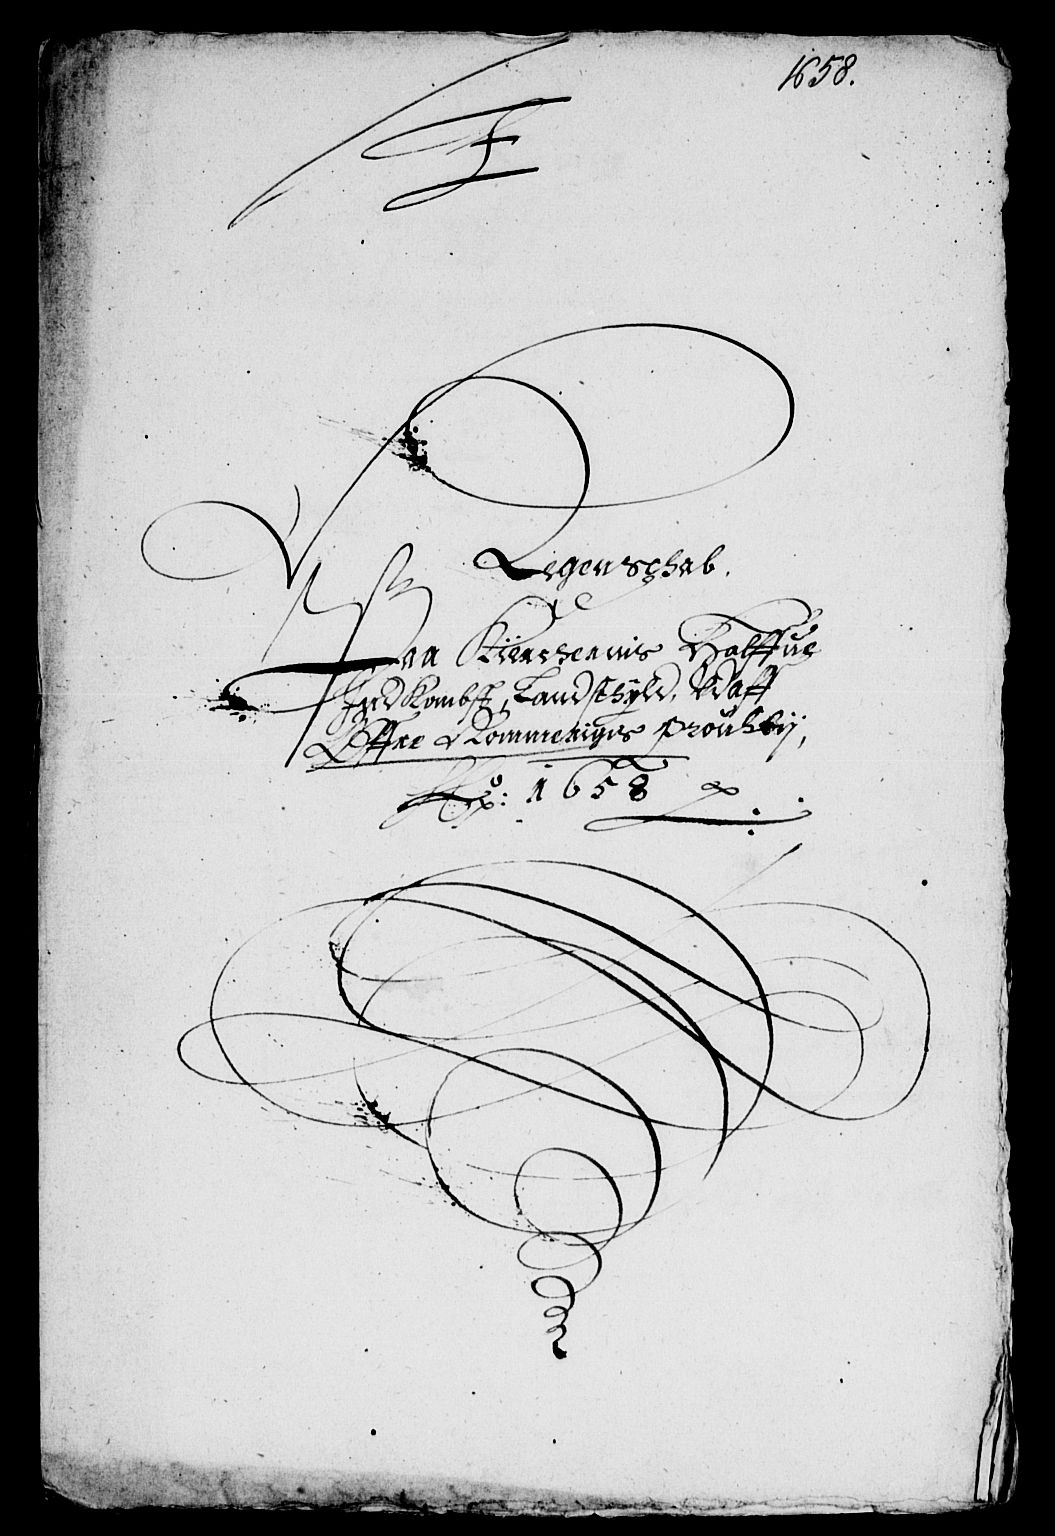 1658.
F
Regenschab.
Paa Kiirchennis Halffue
Indkombst, Landschyld, Udaff
Offre Rommerigis prousti,
Ao: 1658